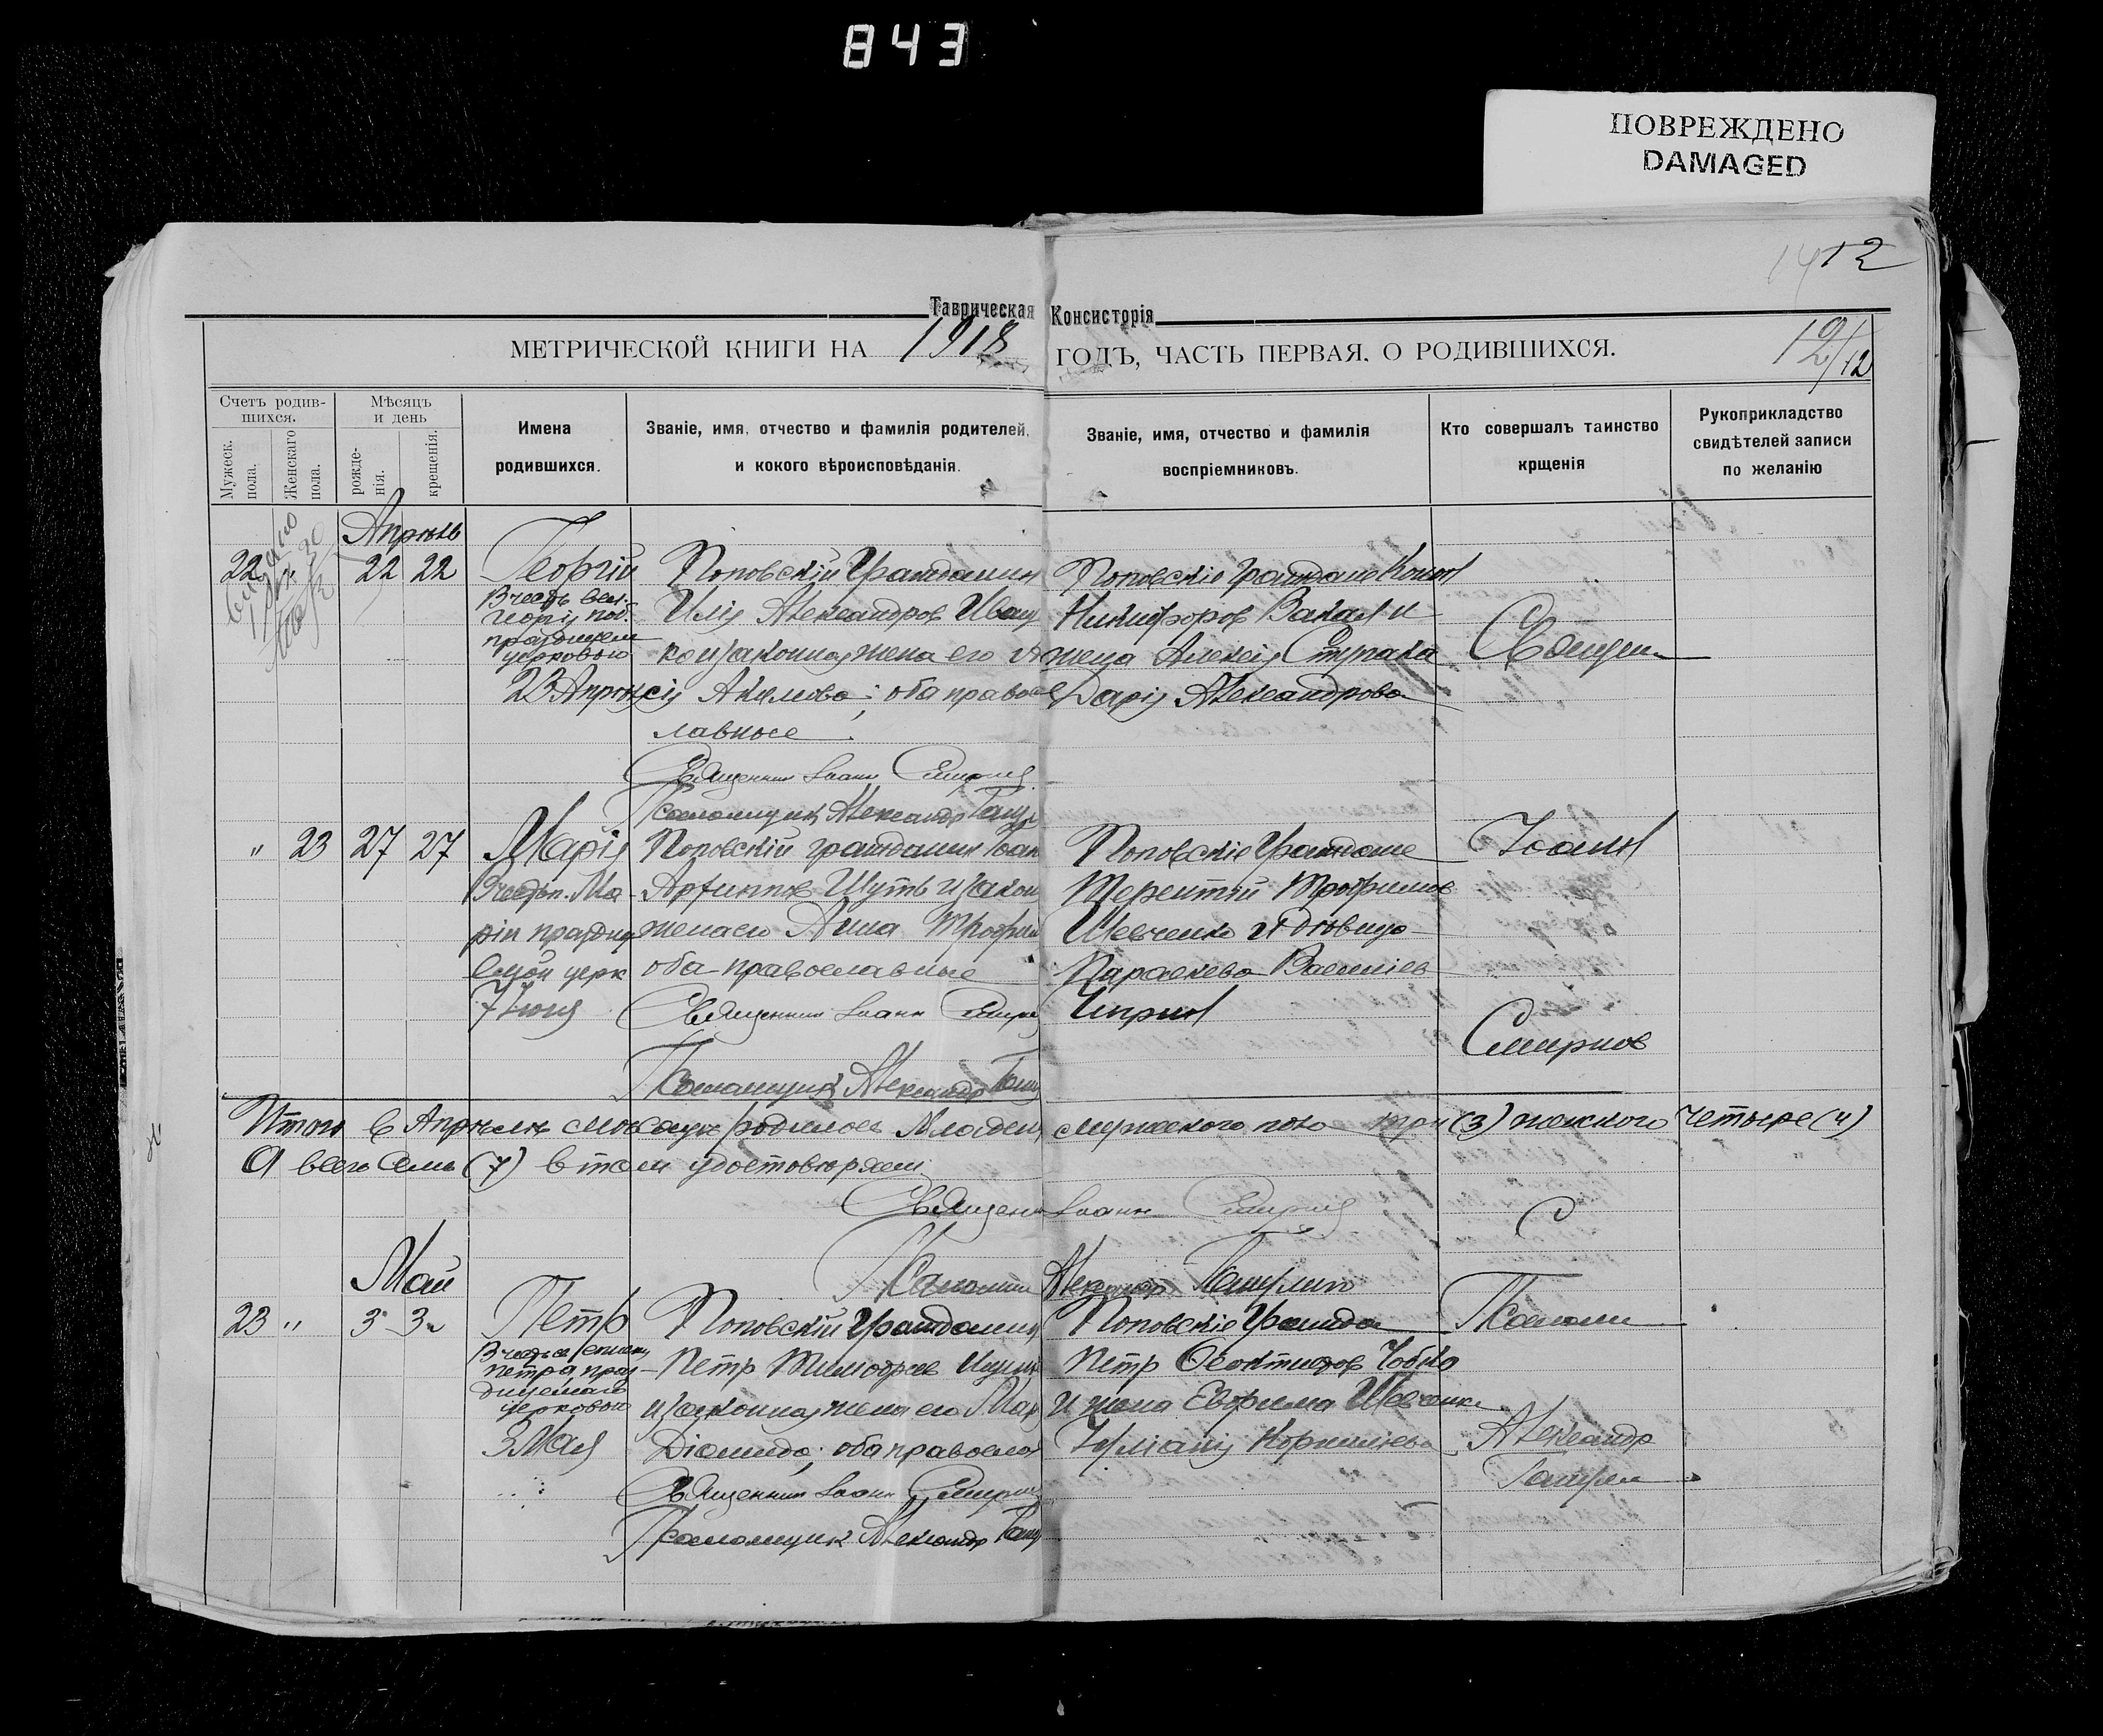 843
ПОВРЕЖДЕНО
DAMAGED
1412
Таврическая Консисторія
МЕТРИЧЕСКОЙ КНИГИ НА 1918 ГОДЪ, ЧАСТЬ ПЕРВАЯ. О РОДИВШИХСЯ.
12/12
Счетъ родив-
шихся.
Мужеск. пола.
Женскаго пола.
Мѣсяцъ
и день
рожде-
нія.
крещенія.
Имена
родившихся.
Званіе, имя, отчество и фамилія родителей,
и кокого вѣроисповѣданія.
Званіе, имя, отчество и фамилія
воспріемниковъ.
Кто совершалъ таинство
крщенія
Рукоприкладство
свидѣтелей записи
по желанію
Апрѣль
22 22 22
Георгій
В честь вел.
Георгія поб.
церковью
23 Апр
Поповскій Гражданин
Илія Александров Иващ
ко и законная жена его
Акилова; оба право
лавные.
Священник Іоанн Смирнов
Псаломщик Александр
Поповскіе Граждане Конон
Никифоров Вакал и
жена Алексія Стрика
Дарія Александрова
Священ
" 23 27 27
Марія
В честь п. Ма-
ріи праздну
емой церк
Поповскій гражданин Іоан
Архипов Шуть и закон
жена его Анна Трофим
оба православные
Священник Іоанн Смирн
Псаломщик Александр
Поповскіе Граждане
Терентій Трофимов
Шевченко и девица
Параскева Василіев
Чирик
Іоанн
Смирнов
Итого в Апрѣлѣ мѣсяцѣ родилось Младен мужеского пола три (3) женского четыре (4)
А всего семь (7) в том удостовѣряем
Священ Іоанн Смирнов
Псаломщ Александр
С
Май
23 " 3 3
Петр
Петра праз-
церковью
3 Мая
Поповскій Гражданин
Петр Тимофеев Ищен
и законная жена его Мар
Діомидо; оба правосла
Священник Іоанн Смирн
Псаломщик Александр
Поповскіе Гражда
Петр Феоктистов Чобко
и жена Ефрема Шевченк
Іуліанія Корниліева
Псаломщ
Александр